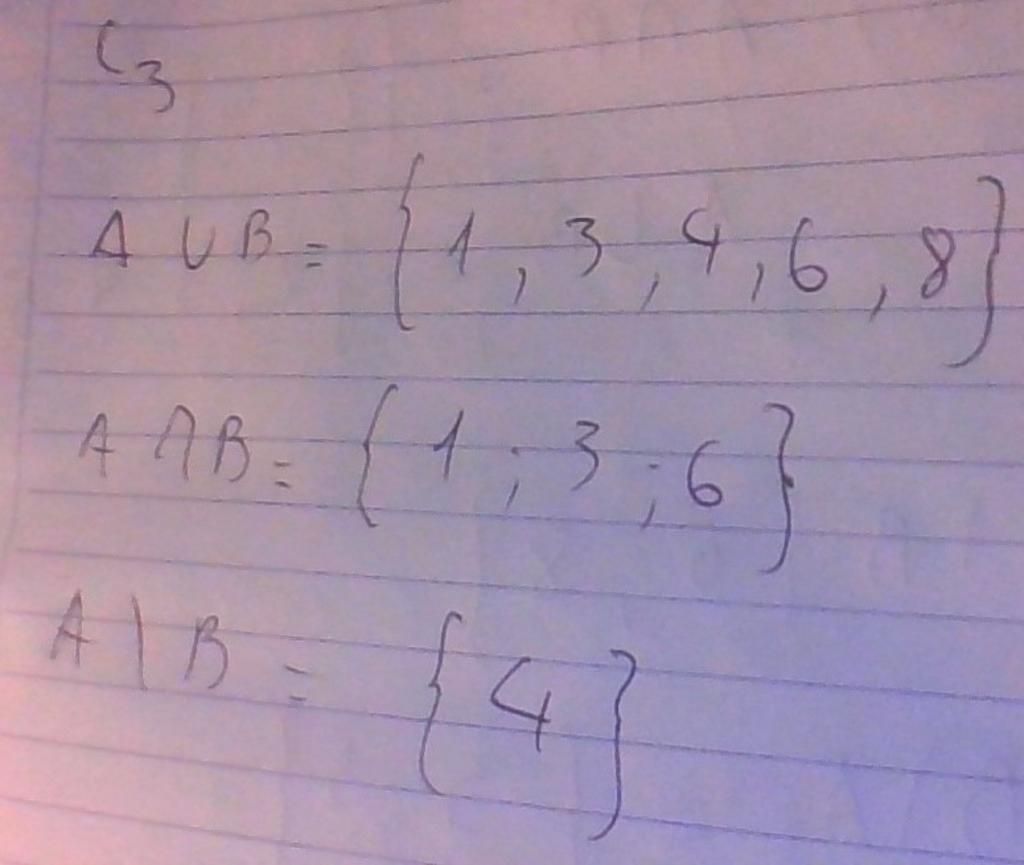 C3
A ∪ B = { 1 , 3 , 4 , 6 , 8 }
A ∩ B = { 1 ; 3 ; 6 }
A \ B = { 4 }